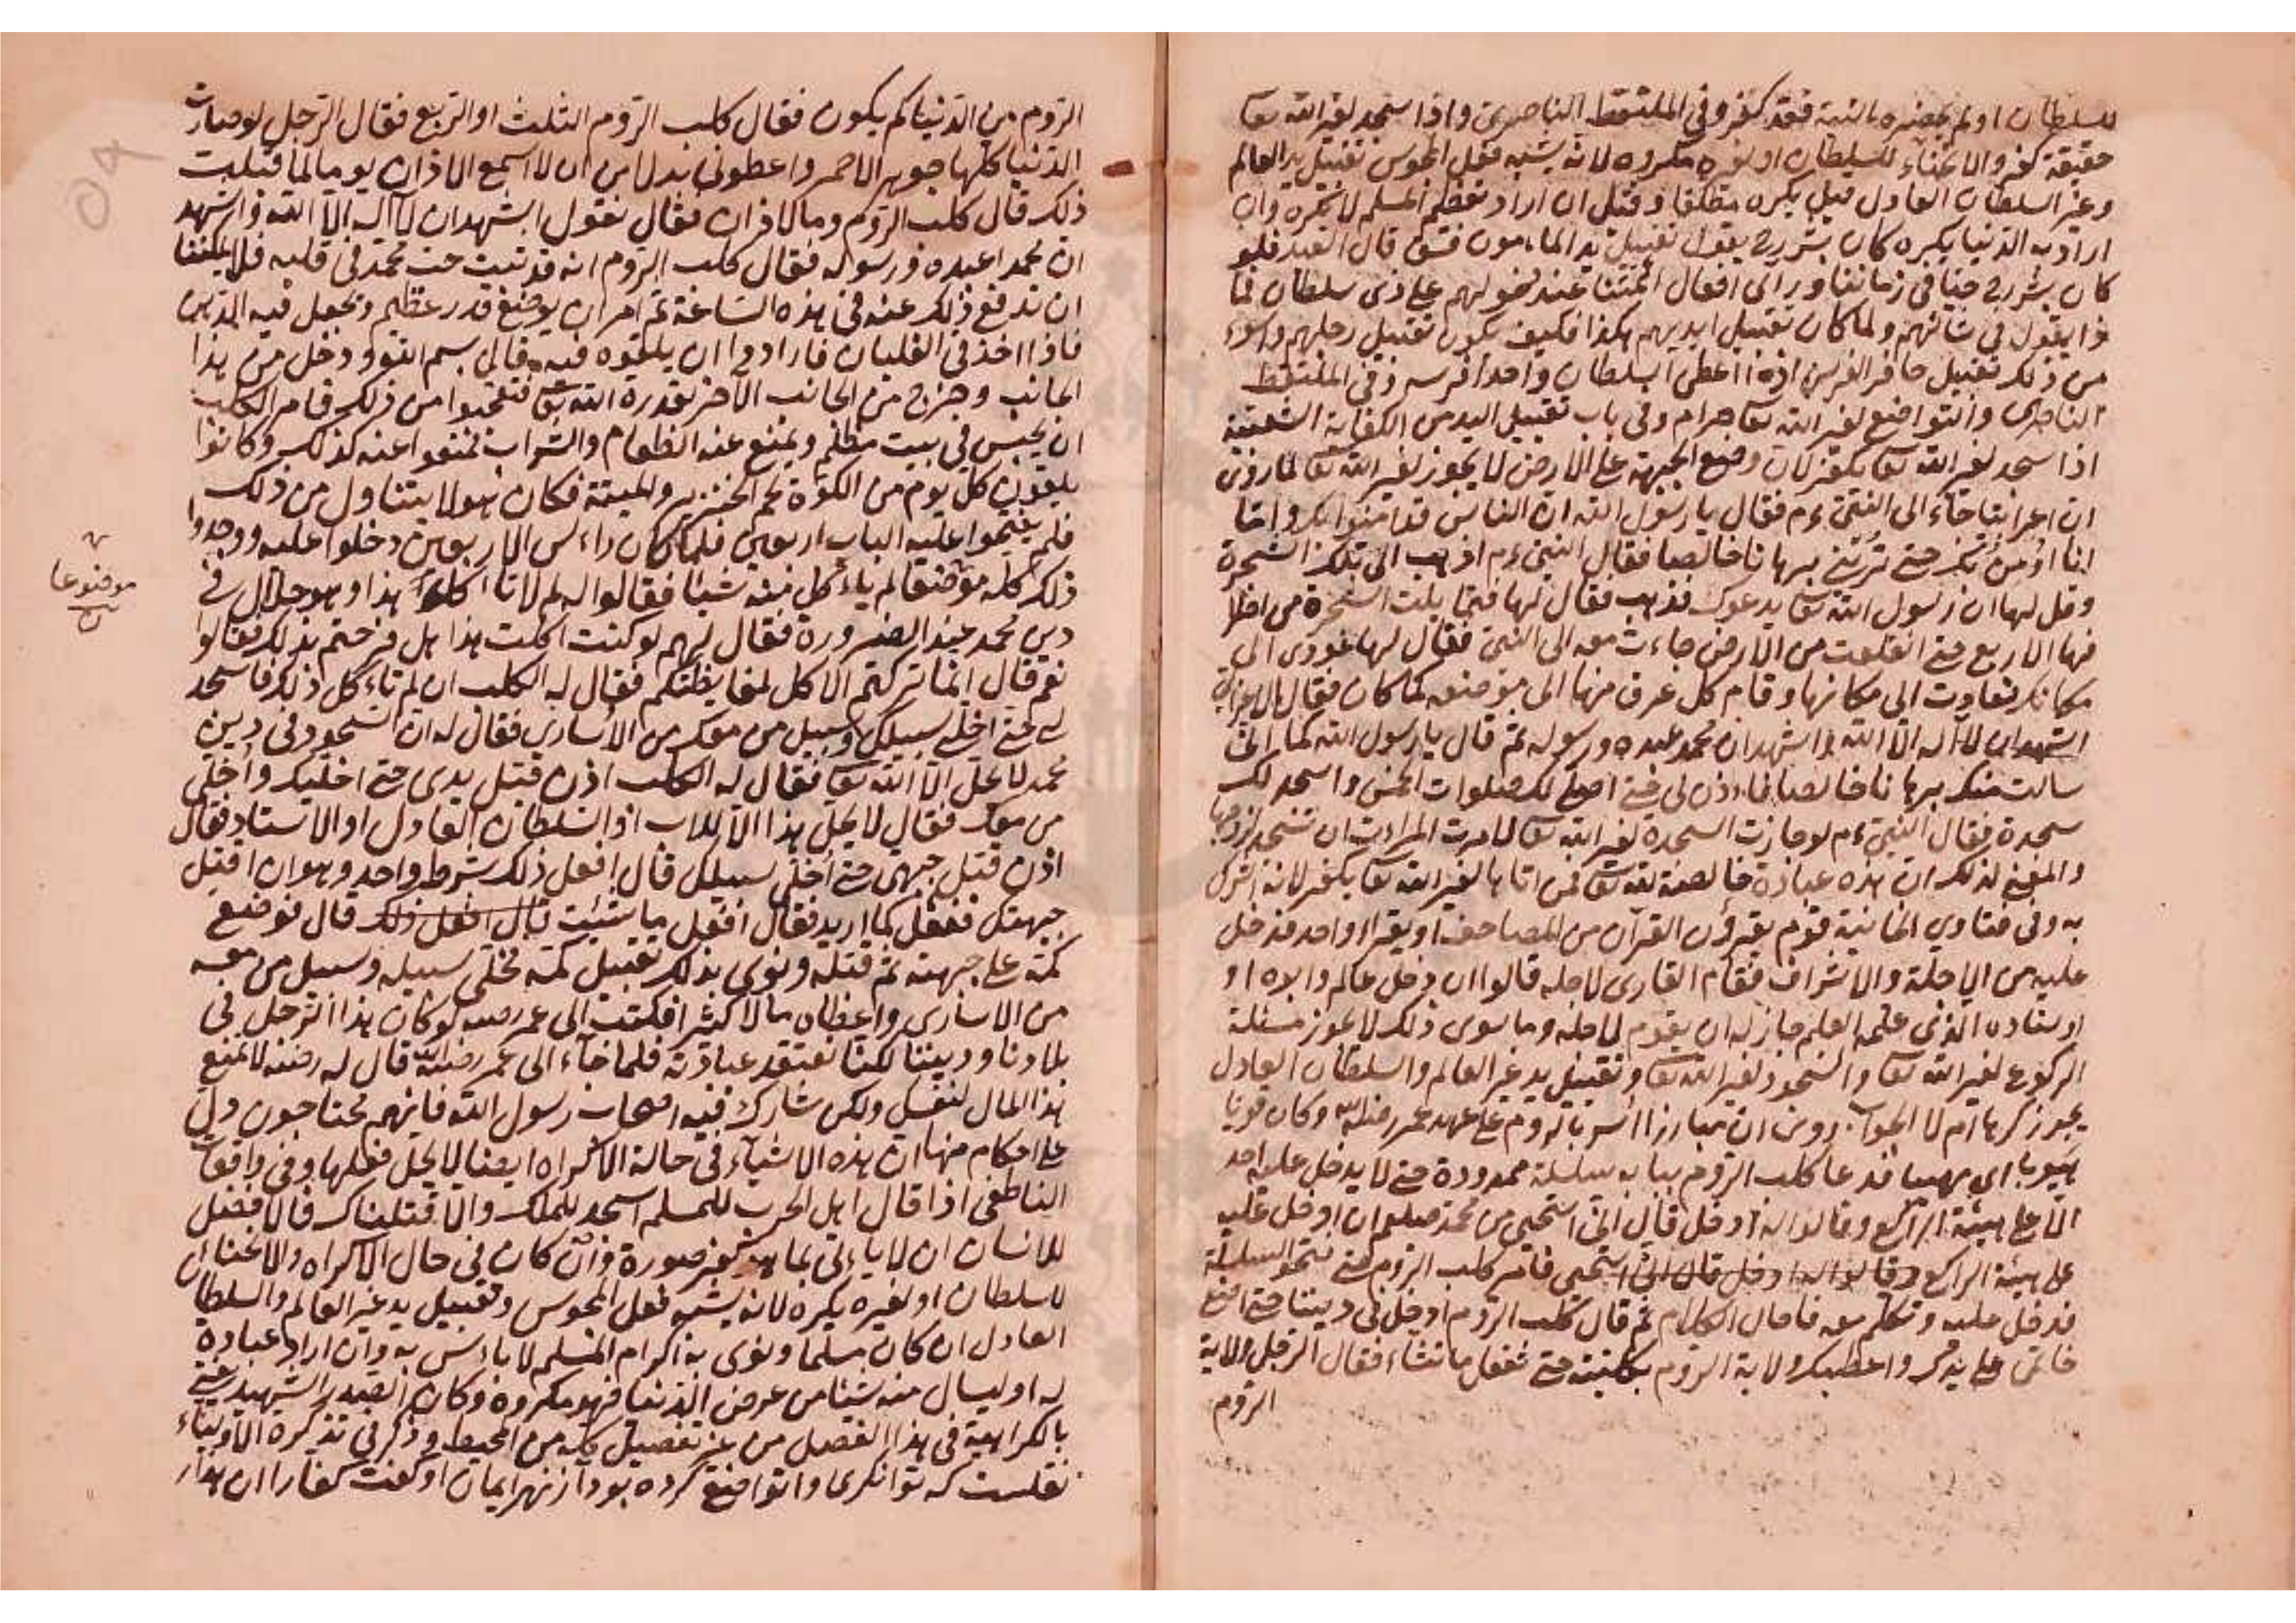 للسلطان او لم يحضره النية فقد كفر وفي الملتقط الناصري واذا سجد لغير الله تعا
حقيقة كفر والانحناء للسلطان او لغيره مكروه لانه يشبه فعل المجوس تقبيل يد العالم
وغير السلطان العادل قيل يكره مطلقا وقيل ان اراد تعظيم المسلم لا يكره وان
اراد به الدنيا يكره كان بشر رح يقول تقبيل يد الماءمون فسق قال العبد فلو
كان بشر رح حيا في زماننا وراى افعال ائمتنا عند دخولهم على ذى سلطان لما
ذا يقول في شانهم ولما كان تقبيل ايديهم هكذا فكيف يكون تقبيل رجلهم واسوء
من ذلك تقبيل حافر الفرس اذا اعطى السلطان واحدا فرسه وفي الملتقط
الناصرى والتواضع لغير الله تعا حرام وفي باب تقبيل اليد من الكفاية الشعبية
اذا سجد لغير الله تعا يكفر لان وضع الجبهة على الارض لا يجوز لغير الله تعا لما روى
ان اعرابيا جاء الى النبى ءم فقال يا رسول الله ان الناس قد امنوا بك واما
انا اؤمن بك حتى تريني برهانا خالصا فقال النبى ءم اذهب الى تلك الشجرة
وقل لها ان رسول الله تعا يدعوك فذهب فقال لها فتمايلت الشجرة من اطرا
فها الاربع حتى انقلعت من الارض جاءت معه الى النبى فقال لها عودى الى
مكانك فعادت الى مكانها وقام كل عرق منها الى موضعه كما كان فقال الاعرابى
اشهد ان لا اله الا الله واشهد ان محمد عبده ورسوله ثم قال يا رسول الله كما انى
سالت منك برهانا خالصا فاءذن لى حتى اصلى لك صلوات الخمس واسجد لك
سجدة فقال النبى ءم لو جازت السجدة لغير الله تعا لامرت المراءت ان تسجد لزوجها
والمعنى لذلك ان هذه عبادة خالصة لله تعا فمن اتا بها لغير الله تعا يكفر لانه اشرك
به وفى فتاوى الخانية قوم يقرؤن القرآن من المصاحف او يقرا واحد فدخل
عليه من الاجلة والاشراف فقام القارى لاجله قالوا ان دخل عالم وابوه او
اوستاده الذى علمه العلم جاز له ان يقوم لاجله وما سوى ذلك لا يجوز مسئلة
الركوع لغير الله تعا والسجود لغير الله تعا وتقبيل يد غير العالم والسلطان العادل
يجوز كرها ام لا الجواب روى ان مبارزا اسر بالروم على عهد عمر رضى الله وكان قويا
هيوبا اى مهيبا فدعا كلب الروم ببابه سلسلة ممدودة حتى لا يدخل عليه احد
الا على هيئة الراكع وقالوا له ادخل قال انى استحيى من محمد صلعم ان ادخل عليه
على هيئة الراكع وقالوا له ادخل قال انى استحيى فامر كلب الروم حتى نحو السلسلة
فدخل عليه وتكلم معه فاطال الكلام ثم قال كلب الروم ادخل فى ديننا حتى اضع
خاتمى على يدك واعطيك ولاية الروم بكليته حتى تفعل ما تشاء فقال الرجل ولاية
الروم
الروم من الدنيا كم يكون فقال كلب الروم الثلث او الربع فقال الرجل لو صارت
الدنيا كلها جوهر الاحمر واعطونى بدلا من ان لا اسمع الاذان يوما لما قبلت
ذلك قال كلب الروم وما الاذان فقال نقول اشهد ان لا اله الا الله واشهد
ان محمدا عبده ورسوله فقال كلب الروم انه قد ثبت حب محمد فى قلبه فلا يمكننا
ان ندفع ذلك عنه فى هذه الساعة ثم امر ان يوضع قدر عظيم ويجعل فيه الدهن
فاذا اخذ فى الغليان فارادوا ان يلقوه فيه قال بسم الله ودخل من هذا
الجانب وخرج من الجانب الآخر بقدرة الله تعا فتعجبوا من ذلك فامر الكلب
ان يحبس فى بيت مظلم ويمنع عنه الطعام والشراب فمنعوا عنه كذلك وكانوا
يلقون كل يوم من الكوة لحم الخنزير والميتة فكان هو لا يتناول من ذلك
فلم يفتحوا عليه الباب اربعين فلما كان راءس الاربعين دخلوا عليه ووجدوا
ذلك كله موضعا لم ياءكل منه شيئا فقالوا له لم لا تاءكل هذا وهو حلال فى
دين محمد عند الضرورة فقال لهم لو كنت اكلت هذا هل فرحتم بذلك فقالوا
نعم قال انما تركتم الاكل لمغايظتكم فقال له الكلب ان لم تاءكل ذلك فاسجد
لى حتى اخلى سبيلك وسبيل من معك من الاسارى فقال له ان السجود فى دين
محمد لا يحل الا الله تعا فقال له الكلب اذن قبل يدى حتى اخليك واخلى
من معك فقال لا يحل هذا الا للاب او السلطان العادل او الاستاد فقال
اذن قبل جبهى حتى اخلى سبيلك قال افعل ذلك بشرط واحد وهو ان اقبل
جبهتك ففعل كما اريد فقال افعل ما شئت قال افعل ذلك قال فوضع
كمه على جبهته ثم قبله ونوى بذلك تقبيل كمه فخلى سبيله وسبيل من معه
من الاسارى واعطاه مالا كثيرا فكتب الى عمر رضه لو كان هذا الرجل فى
بلادنا وديننا لكنا نعتقد عبادته فلما جاء الى عمر رضى الله قال له رضه لا تمنع
هذا المال لنفسك ولكن شارك فيه اصحاب رسول الله فانهم محتاجون دل
على احكام منها ان هذه الاشياء فى حالة الاكراه ايضا لا يحل فعلها وفى واقعات
الناطفى اذا قال اهل الحرب للمسلم اسجد للملك والا قتلناك فالافضل
للانسان ان لا ياءتى بما هو كفر صورة وان كان فى حال الاكراه والانحنا ان
للسلطان او لغيره يكره لانه يشبه فعل المجوس وتقبيل يد غير العالم والسلطا
العادل ان كان مسلما ونوى به اكرام المسلم لا باءس به وان اراد عبادة
له او ليسال منه شيئا من عرض الدنيا فهو مكروه وكان الصدر الشهيد يفتى
بالكراهية فى هذا الفصل من غير تفصيل كله من المحيط وذكر فى تذكرة الاولياء
نقلست كه توانكرى وا تواضع كرده بود از بهر ايمان او كفت كفارا ان
موضوعا